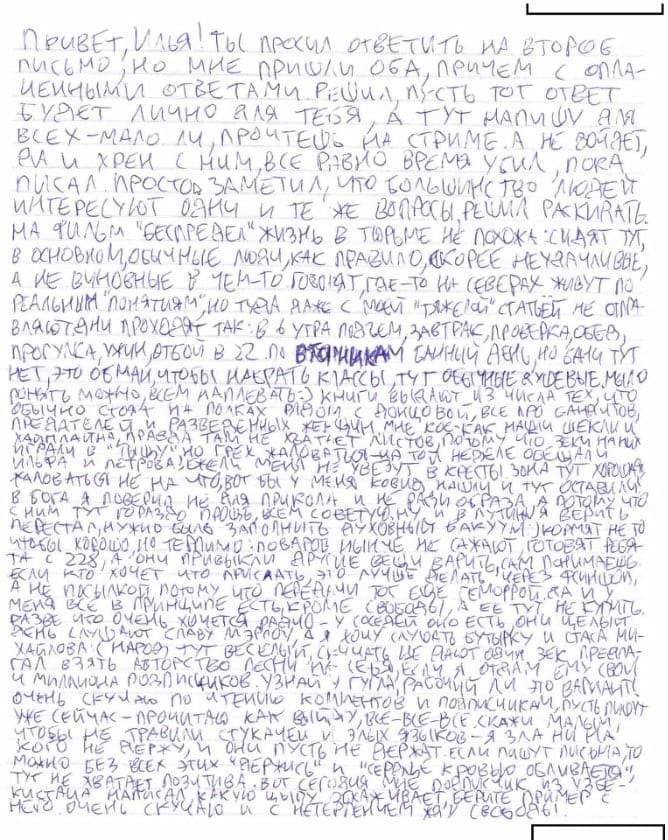 ПРИВЕТ, ИЛЬЯ! ТЫ ПРОСИЛ ОТВЕТИТЬ НА ВТОРОЕ
ПИСЬМО, НО МНЕ ПРИШЛИ ОБА, ПРИЧЕМ С ОПЛА-
ЧЕННЫМИ ОТВЕТАМИ. РЕШИЛ, ПУСТЬ ТОТ ОТВЕТ
БУДЕТ ЛИЧНО ДЛЯ ТЕБЯ, А ТУТ НАПИШУ ДЛЯ
ВСЕХ - МАЛО ЛИ, ПРОЧТЕШЬ НА СТРИМЕ. А НЕ ВОЙДЕТ,
ДА И ХРЕН С НИМ, ВСЕ РАВНО ВРЕМЯ УБИЛ, ПОКА
ПИСАЛ. ПРОСТО ЗАМЕТИЛ, ЧТО БОЛЬШИНСТВО ЛЮДЕЙ
ИНТЕРЕСУЮТ ОДНИ И ТЕ ЖЕ ВОПРОСЫ, РЕШИЛ РАСКИДАТЬ.
НА ФИЛЬМ "БЕСПРЕДЕЛ" ЖИЗНЬ В ТЮРЬМЕ НЕ ПОХОЖА: СИДЯТ ТУТ,
В ОСНОВНОМ, ОБЫЧНЫЕ ЛЮДИ, КАК ПРАВИЛО, СКОРЕЕ НЕУДАЧЛИВЫЕ,
А НЕ ВИНОВНЫЕ В ЧЕМ-ТО. ГОВОРЯТ, ГДЕ-ТО НА СЕВЕРАХ ЖИВУТ ПО
РЕАЛЬНЫМ "ПОНЯТИЯМ", НО ТУДА ДАЖЕ С МОЕЙ "ТЯЖЕЛОЙ" СТАТЬЕЙ НЕ ОТПРА-
ВЛЯЮТ. ДНИ ПРОХОДЯТ ТАК: В 6 УТРА ПОДЪЕМ, ЗАВТРАК, ПРОВЕРКА, ОБЕД,
ПРОГУЛКА, УЖИН, ОТБОЙ В 22. ПО ВТОРНИКАМ БАННЫЙ ДЕНЬ, НО БАНИ ТУТ
НЕТ, ЭТО ОБМАН, ЧТОБЫ НАБРАТЬ КЛАССЫ, ТУТ ОБЫЧНЫЕ ДУШЕВЫЕ. МЫЛО
РОНЯТЬ МОЖНО, ВСЕМ НАПЛЕВАТЬ :) КНИГИ ВЫДАЮТ ИЗ ЧИСЛА ТЕХ, ЧТО
ОБЫЧНО СТОЯТ НА ПОЛКАХ РЯДОМ С ДОНЦОВОЙ, ВСЕ ПРО БАНДИТОВ,
ПРЕДАТЕЛЕЙ И РАЗВЕДЕННЫХ ЖЕНЩИН. МНЕ КОЕ-КАК НАШЛИ ШЕКЛИ И
ХАЙНЛАЙНА, ПРАВДА ТАМ НЕ ХВАТАЕТ ЛИСТОВ, ПОТОМУ ЧТО ЗЕКИ НА НИХ
ИГРАЛИ В НО ГРЕХ ЖАЛОВАТЬСЯ - НА ТОЙ НЕДЕЛЕ ОБЕЩАЛИ
ИЛЬФА И ПЕТРОВА, ЕЖЕЛИ МЕНЯ НЕ УВЕЗУТ В КРЕСТЫ. ЗОНА ТУТ ХОРОШАЯ,
ЖАЛОВАТЬСЯ НЕ НА ЧТО, ВОТ БЫ У МЕНЯ КОВИД НАШЛИ И ТУТ ОСТАВИЛИ
В БОГА Я ПОВЕРИЛ НЕ ДЛЯ ПРИКОЛА И НЕ РАДИ ОБРАЗА, А ПОТОМУ ЧТО
С НИМ ТУТ ГОРАЗДО ПРОЩЕ, ВСЕМ СОВЕТУЮ. НУ И В ПУТИНА ВЕРИТЬ
ПЕРЕСТАЛ, НУЖНО БЫЛО ЗАПОЛНИТЬ ДУХОВНЫЙ ВАКУУМ :) КОРМЯТ НЕ ТО
ЧТОБЫ ХОРОШО, НО ТЕРПИМО: ПОВАРОВ НЫНЧЕ НЕ САЖАЮТ, ГОТОВЯТ РЕБЯ-
ТА С 228, А ОНИ ПРИВЫКЛИ ДРУГИЕ ВЕЩИ ВАРИТЬ, САМ ПОНИМАЕШЬ.
ЕСЛИ КТО ХОЧЕТ ЧТО ПРИСЛАТЬ, ЭТО ЛУЧШЕ ДЕЛАТЬ ЧЕРЕЗ ФСИНШОП,
А НЕ ПОСЫЛКОЙ, ПОТОМУ ЧТО ПЕРЕДАЧИ ТОТ ЕЩЕ ГЕМОРРОЙ. ДА И У
МЕНЯ ВСЕ В ПРИНЦИПЕ ЕСТЬ, КРОМЕ СВОБОДЫ, А ЕЕ ТУТ НЕ КУПИТЬ.
РАЗВЕ ЧТО ОЧЕНЬ ХОЧЕТСЯ РАДИО - У СОСЕДЕЙ ОНО ЕСТЬ, ОНИ ЦЕЛЫЙ
ДЕНЬ СЛУШАЮТ СЛАВУ МЭРЛОУ, А Я ХОЧУ СЛУШАТЬ БУТЫРКУ И СТАСА МИ-
ХАЙЛОВА :( НАРОД ТУТ ВЕСЕЛЫЙ, СКУЧАТЬ НЕ ДАЮТ. ОДИН ЗЕК ПРЕДЛА-
ГАЛ ВЗЯТЬ АВТОРСТВО ПЕСНИ НА СЕБЯ, ЕСЛИ Я ОТДАМ ЕМУ СВОИ
4 МИЛЛИОНА ПОДПИСЧИКОВ. УЗНАЙ У РАБОЧИЙ ЛИ ЭТО ВАРИАНТ.
ОЧЕНЬ СКУЧАЮ ПО ЧТЕНИЮ КОММЕНТОВ И ПОДПИСЧИКАМ, ПУСТЬ ПИШУТ
УЖЕ СЕЙЧАС - ПРОЧИТАЮ КАК ВЫЙДУ, ВСЕ-ВСЕ-ВСЕ. СКАЖИ МАЛЫМ,
ЧТОБЫ НЕ ТРАВИЛИ СТУКАЧЕЙ И ЗЛЫХ ЯЗЫКОВ - Я ЗЛА НИ НА
КОГО НЕ ДЕРЖУ, И ОНИ ПУСТЬ НЕ ДЕРЖАТ. ЕСЛИ ПИШУТ ПИСЬМА, ТО
МОЖНО БЕЗ ВСЕХ ЭТИХ "ДЕРЖИСЬ" И "СЕРДЦЕ КРОВЬЮ ОБЛИВАЕТСЯ",
ТУТ НЕ ХВАТАЕТ ПОЗИТИВА. ВОТ СЕГОДНЯ МНЕ ПОДПИСЧИК ИЗ УЗБЕ-
КИСТАНА НАПИСАЛ КАКУЮ ЦЫПУ ОБХАЖИВАЕТ, БЕРИТЕ ПРИМЕР С
НЕГО. ОЧЕНЬ СКУЧАЮ И С НЕТЕРПЕНИЕМ ЖДУ СВОБОДЫ.